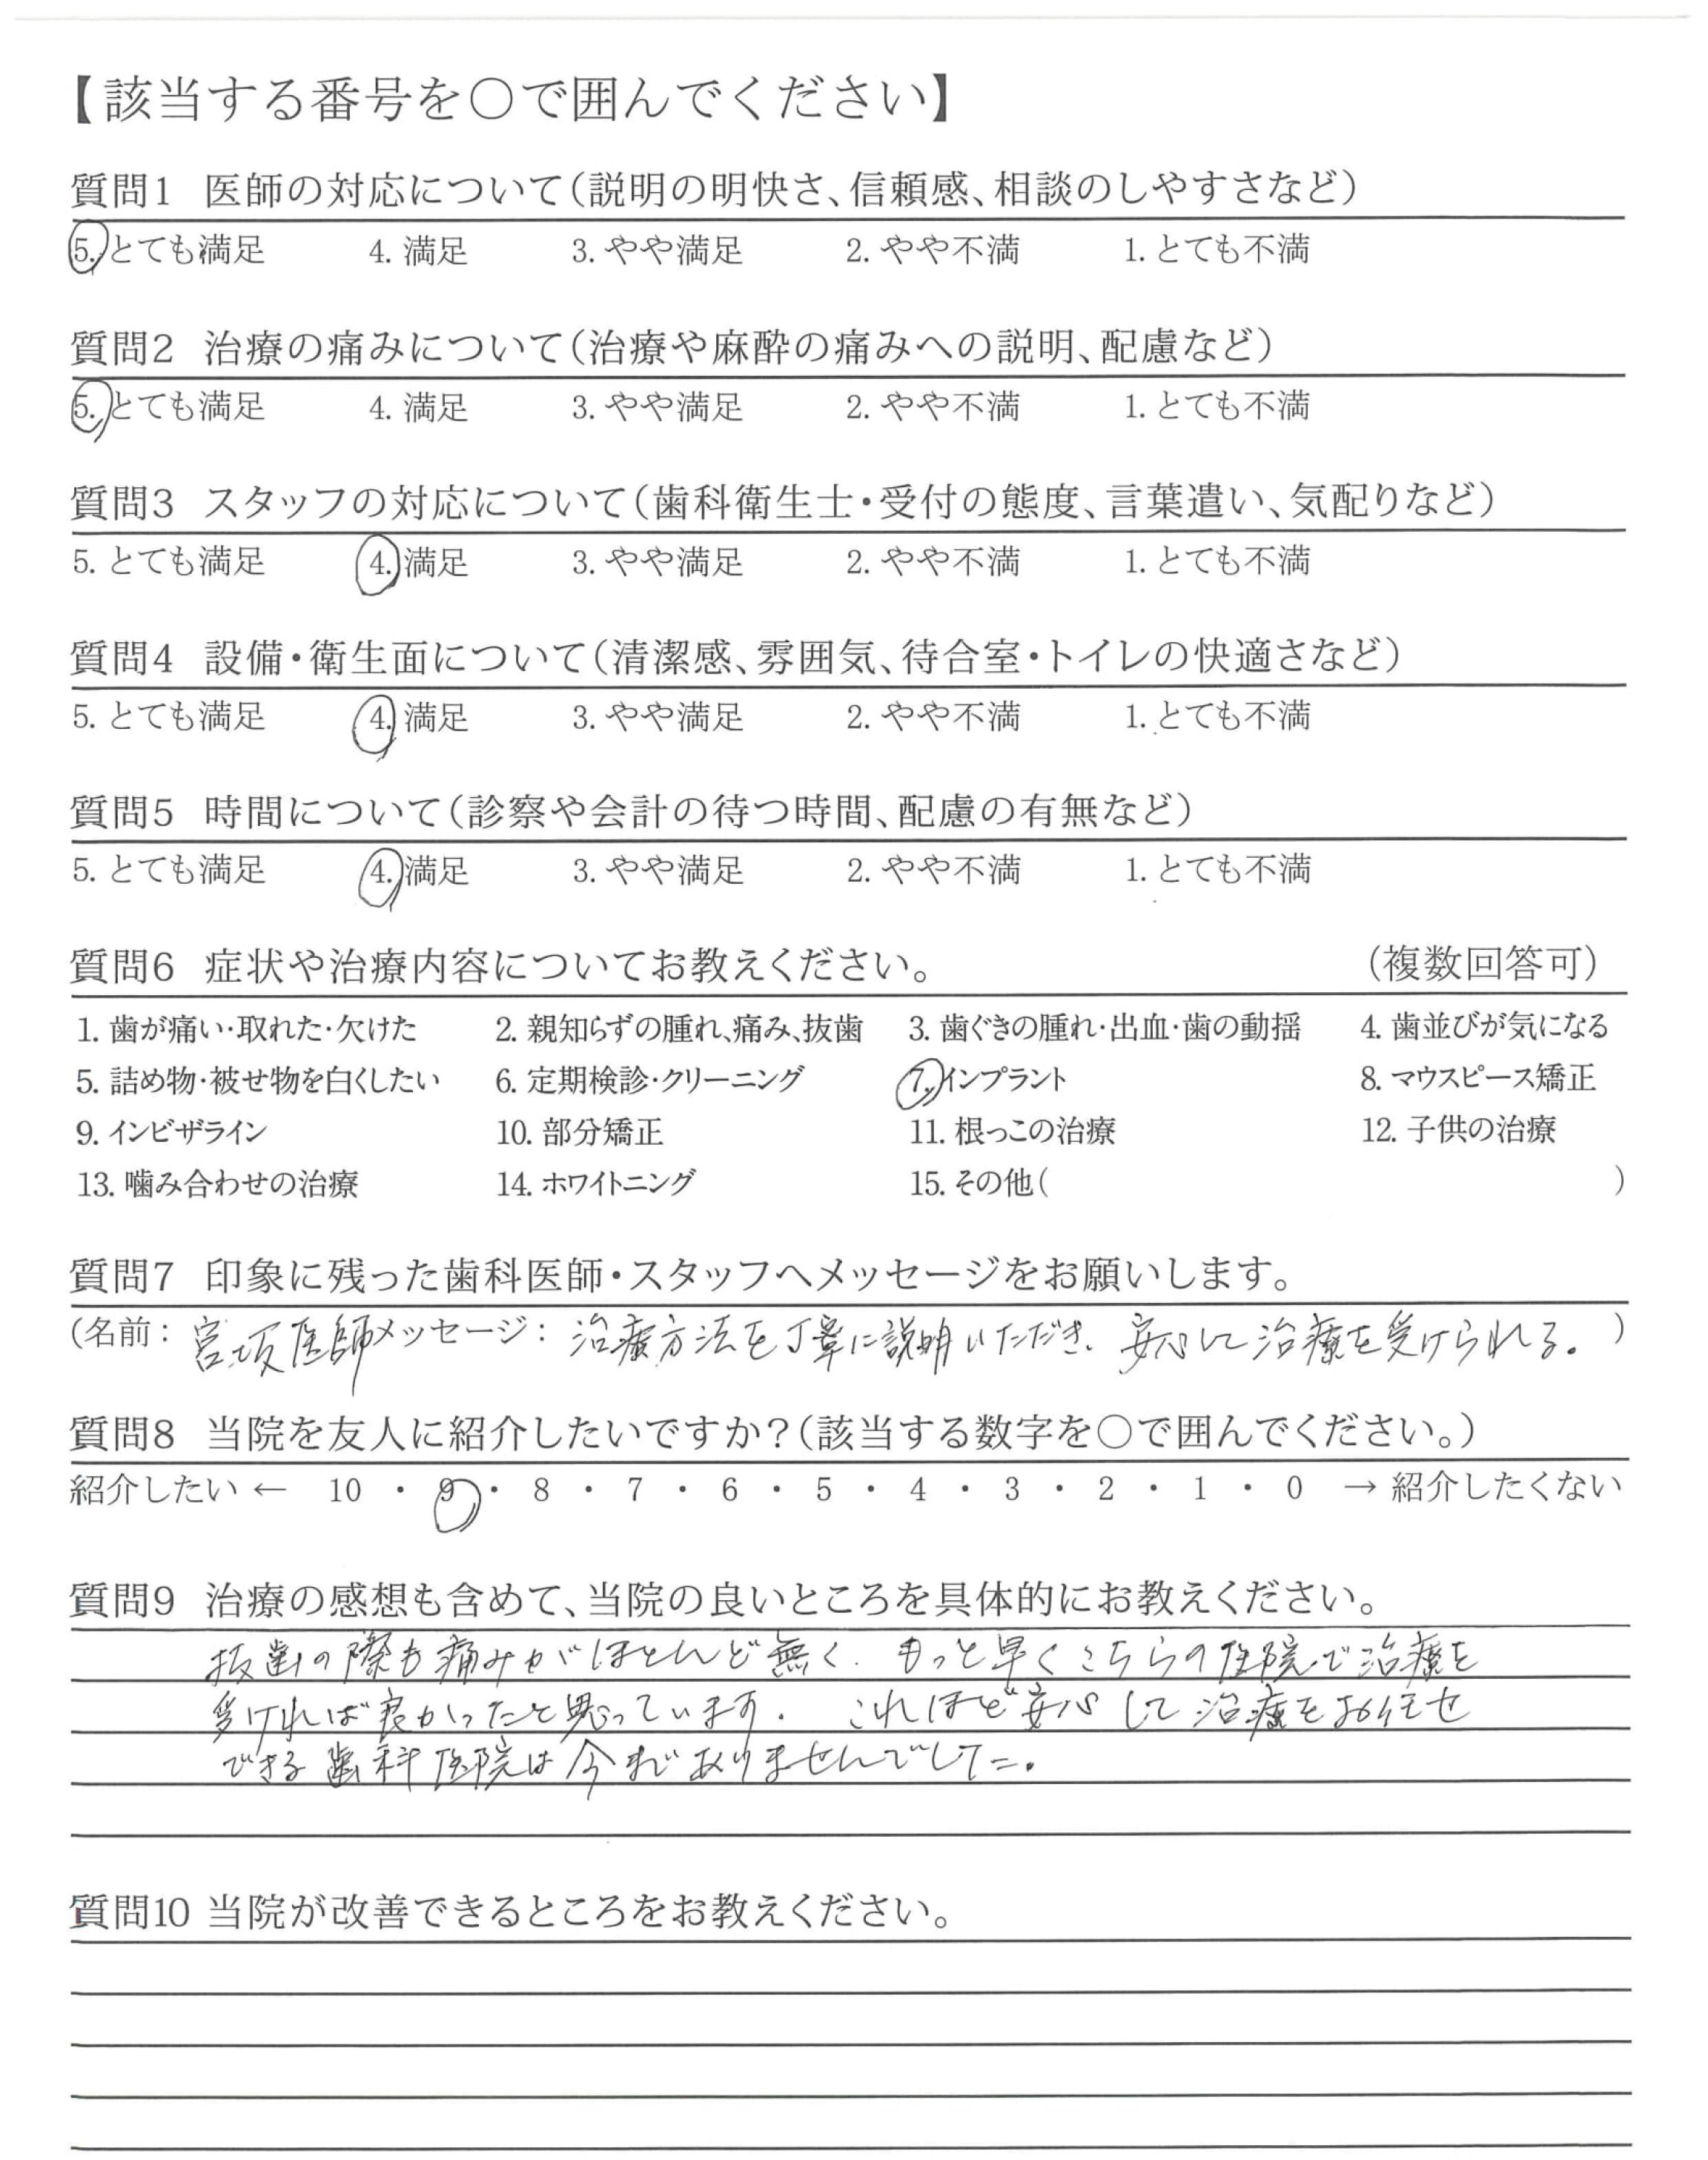 【該当する番号を○で囲んでください】
質問1 医師の対応について(説明の明快さ、信頼感、相談のしやすさなど)
5. とても満足 4. 満足 3. やや満足 2. やや不満 1. とても不満
質問2 治療の痛みについて(治療や麻酔の痛みへの説明、配慮など)
5. とても満足 4. 満足 3. やや満足 2. やや不満 1. とても不満
質問3 スタッフの対応について(歯科衛生士・受付の態度、言葉遣い、気配りなど)
5. とても満足 4. 満足 3. やや満足 2. やや不満 1. とても不満
質問4 設備・衛生面について(清潔感、雰囲気、待合室・トイレの快適さなど)
5. とても満足 4. 満足 3. やや満足 2. やや不満 1. とても不満
質問5 時間について(診察や会計の待つ時間、配慮の有無など)
5. とても満足 4. 満足 3. やや満足 2. やや不満 1. とても不満
質問6 症状や治療内容についてお教えください。 (複数回答可)
1. 歯が痛い・取れた・欠けた 2. 親知らずの腫れ、痛み、抜歯 3. 歯ぐきの腫れ・出血・歯の動揺 4. 歯並びが気になる
5. 詰め物・被せ物を白くしたい 6. 定期検診・クリーニング 7. インプラント 8. マウスピース矯正
9. インビザライン 10. 部分矯正 11. 根っこの治療 12. 子供の治療
13. 噛み合わせの治療 14. ホワイトニング 15. その他( )
質問7 印象に残った歯科医師・スタッフへメッセージをお願いします。
(名前: 宮坂医師 メッセージ: 治療方法を丁寧に説明いただき、安心して治療を受けられる。 )
質問8 当院を友人に紹介したいですか?(該当する数字を○で囲んでください。)
紹介したい ← 10 ・ 9 ・ 8 ・ 7 ・ 6 ・ 5 ・ 4 ・ 3 ・ 2 ・ 1 ・ 0 → 紹介したくない
質問9 治療の感想も含めて、当院の良いところを具体的にお教えください。
抜歯の際も痛みがほとんど無く、もっと早くこちらの医院で治療を
受ければ良かったと思っています。 これほど安心して治療をお任せ
できる歯科医院は今までありませんでした。
質問10 当院が改善できるところをお教えください。